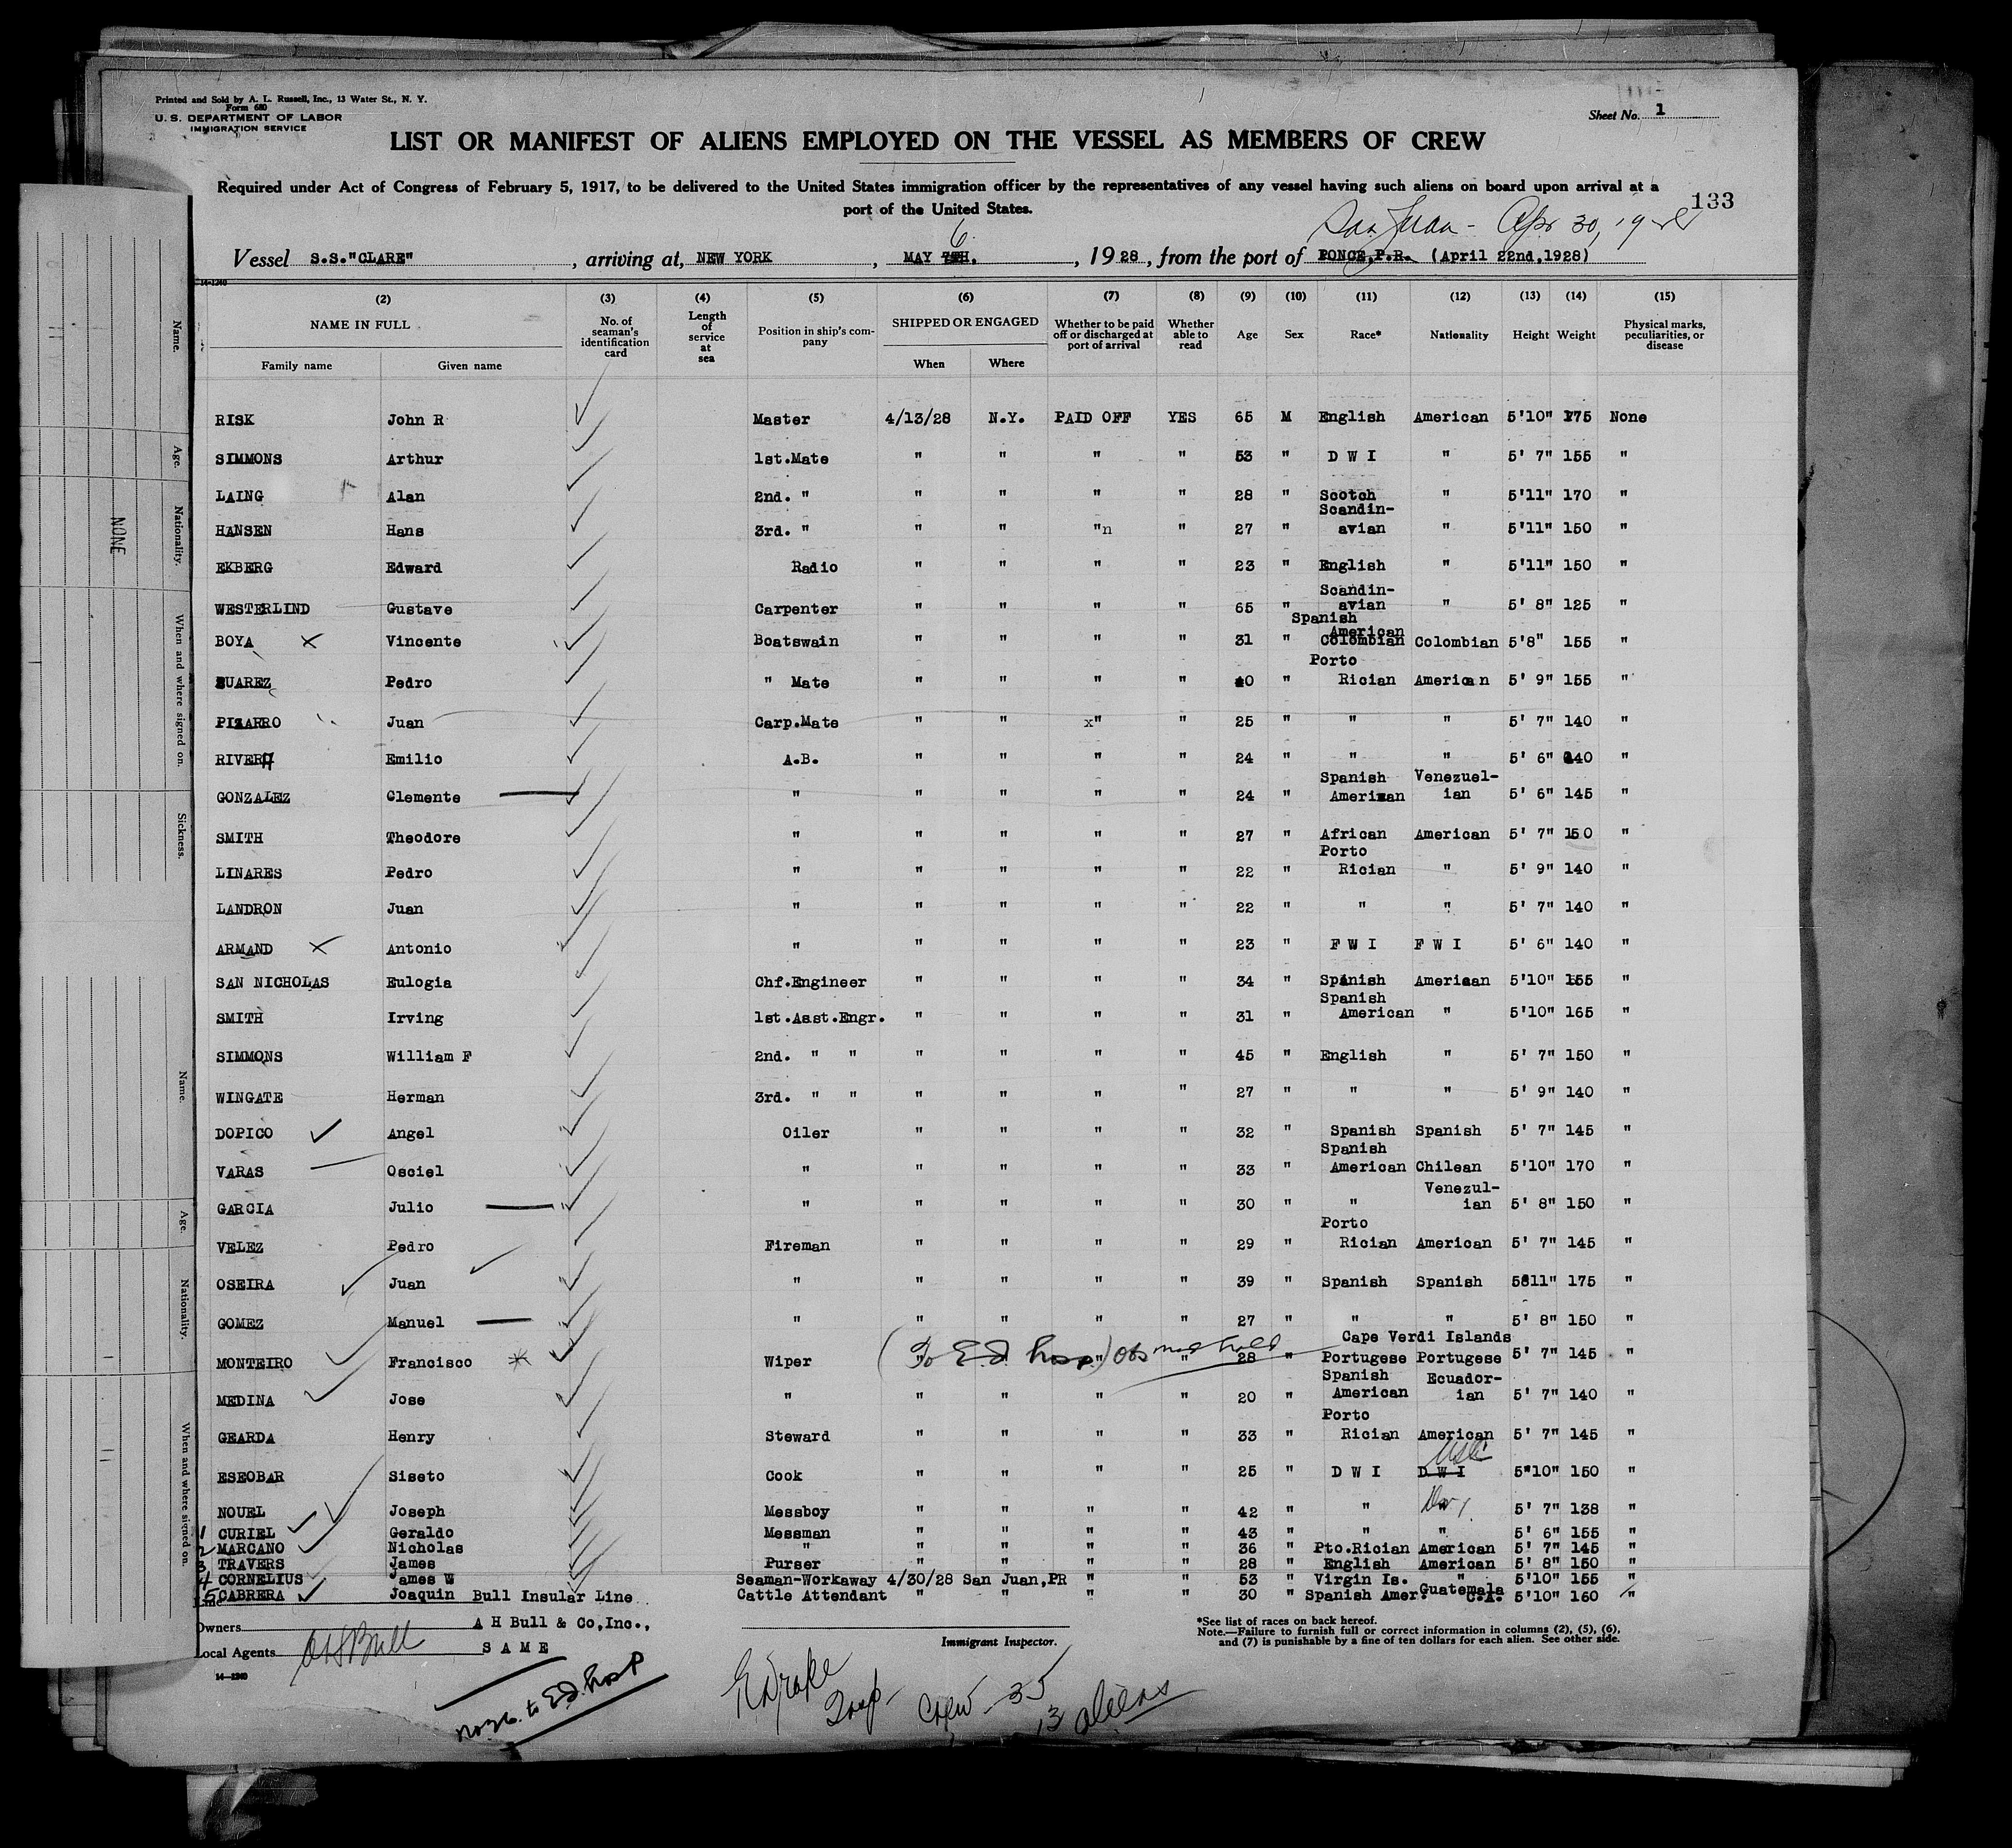 Printed and Sold by A. L. Russell, Inc., 13 Water St., N. Y.
Form 680
U. S. DEPARTMENT OF LABOR
IMMIGRATION SERVICE
Sheet No. 1
LIST OR MANIFEST OF ALIENS EMPLOYED ON THE VESSEL AS MEMBERS OF CREW
Required under Act of Congress of February 5, 1917, to be delivered to the United States immigration officer by the representatives of any vessel having such aliens on board upon arrival at a
port of the United States.
133
San Juan - Apr 30, 1928
6
Vessel S.S."CLARE" , arriving at, NEW YORK , MAY 7TH. , 1928 , from the port of PONCE,P.R. (April 22nd,1928)
14-1240
(2) (3) (4) (5) (6) (7) (8) (9) (10) (11) (12) (13) (14) (15)
NAME IN FULL No. of seaman's identification card Length of service at sea Position in ship's company SHIPPED OR ENGAGED Whether to be paid off or discharged at port of arrival Whether able to read Age Sex Race* Nationality Height Weight Physical marks, peculiarities, or disease
Family name Given name When Where
RISK John R Master 4/13/28 N.Y. PAID OFF YES 65 M English American 5'10" 175 None
SIMMONS Arthur 1st.Mate " " " " 53 " D W I " 5' 7" 155 "
LAING Alan 2nd. " " " " " 28 " Scotch " 5'11" 170 "
HANSEN Hans 3rd. " " " "n " 27 " Scandin-avian " 5'11" 150 "
EKBERG Edward Radio " " " " 23 " English " 5'11" 150 "
WESTERLIND Gustave Carpenter " " " " 65 " Scandin-avian " 5' 8" 125 "
BOYA x Vincente Boatswain " " " " 31 " Spanish American Colombian Colombian 5'8" 155 "
SUAREZ Pedro " Mate " " " " 40 " Porto Rician American 5' 9" 155 "
PIZARRO Juan Carp.Mate " " x" " 25 " " " 5' 7" 140 "
RIVERA Emilio A.B. " " " " 24 " " " 5' 6" 140 "
GONZALEZ Clemente " " " " " 24 " Spanish American Venezuel-ian 5' 6" 145 "
SMITH Theodore " " " " " 27 " African American 5' 7" 150 "
LINARES Pedro " " " " " 22 " Porto Rician " 5' 9" 140 "
LANDRON Juan " " " " " 22 " " " 5' 7" 140 "
ARMAND x Antonio " " " " " 23 " F W I F W I 5' 6" 140 "
SAN NICHOLAS Eulogia Chf.Engineer " " " " 34 " Spanish American 5'10" 155 "
SMITH Irving 1st.Asst.Engr. " " " " 31 " Spanish American " 5'10" 165 "
SIMMONS William F 2nd. " " " " " " 45 " English " 5' 7" 150 "
WINGATE Herman 3rd. " " " " " " 27 " " " 5' 9" 140 "
DOPICO Angel Oiler " " " " 32 " Spanish Spanish 5' 7" 145 "
VARAS Osciel " " " " " 33 " Spanish American Chilean 5'10" 170 "
GARCIA Julio " " " " " 30 " " Venezul-ian 5' 8" 150 "
VELEZ Pedro Fireman " " " " 29 " Porto Rician American 5' 7" 145 "
OSEIRA Juan " " " " " 39 " Spanish Spanish 5'11" 175 "
GOMEZ Manuel " " " " " 27 " " " 5' 8" 150 "
MONTEIRO Francisco Wiper (To E.I. hosp.) " " 28 " Cape Verdi Islands Portugese Portugese 5' 7" 145 "
MEDINA Jose " " " " " 20 " Spanish American Ecuador-ian 5' 7" 140 "
GEARDA Henry Steward " " " " 33 " Porto Rician American 5' 7" 145 "
ESEOBAR Siseto Cook " " " " 25 " D W I D W I 5'10" 150 "
NOUEL Joseph Messboy " " " " 42 " " " 5' 7" 138 "
1 CURIEL Geraldo Messman " " " " 43 " " " 5' 6" 155 "
2 MARCANO Nicholas " " " " " 36 " Pto.Rician American 5' 7" 145 "
3 TRAVERS James Purser " " " " 28 " English American 5' 8" 150 "
4 CORNELIUS James W Seaman-Workaway 4/30/28 San Juan,PR " " 53 " Virgin Is. " 5'10" 155 "
5 CABRERA Joaquin Cattle Attendant " " " " 30 " Spanish Amer. Guatemala C.A. 5'10" 150 "
Bull Insular Line
Owners A H Bull & Co,Inc.,
Local Agents SAME
A H Bull
14-1240
Immigrant Inspector.
*See list of races on back hereof.
Note.—Failure to furnish full or correct information in columns (2), (5), (6),
and (7) is punishable by a fine of ten dollars for each alien. See other side.
no 26. to E.I. hosp
Insp
Crew 35
13 aliens
Name.
Age.
Nationality.
NONE
When and where signed on.
Sickness.
Name.
Age.
Nationality.
When and where signed on.